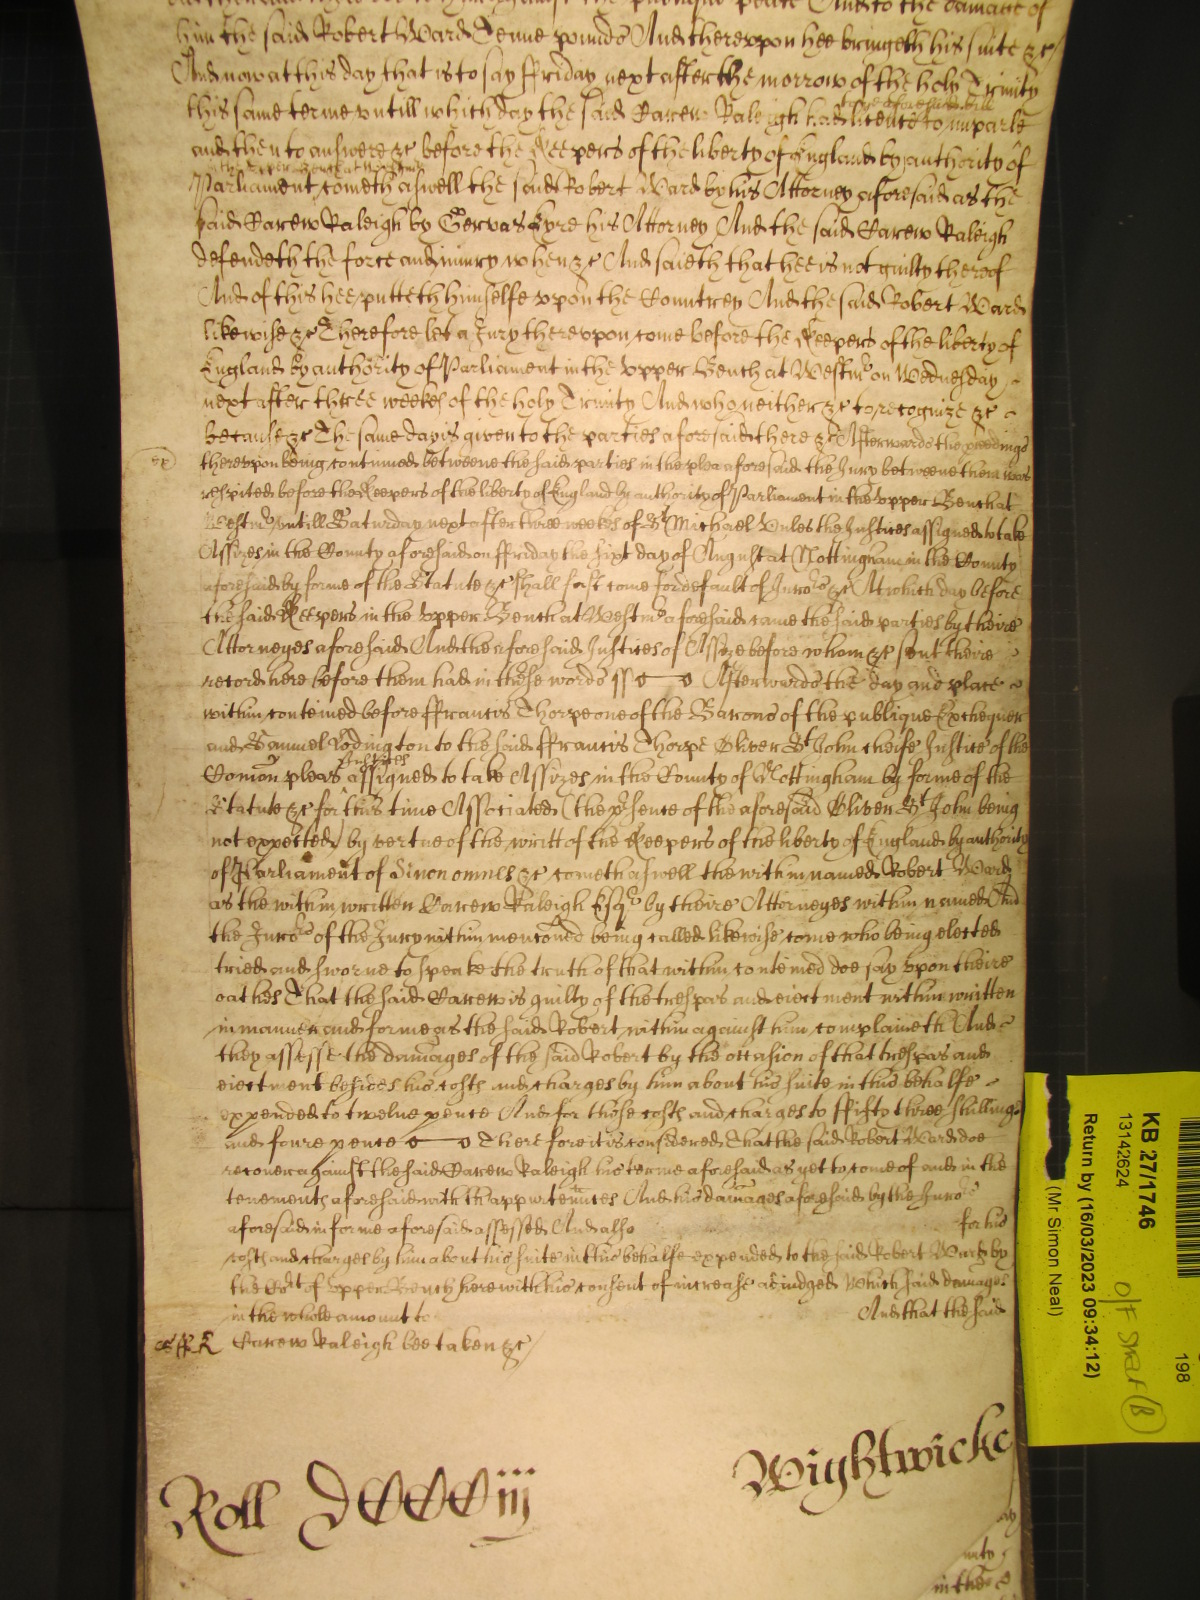 the publique peace And to the damage of
him the said Robert Ward Tenne pounds And thereupon hee bringeth his suite &c
And now at this day that is to say ffriday next after the morrow of the holy Trinity
this same terme untill which day the said Carew Raleigh had licence to imparle
to the aforesaid bill
and then to answere &c before the Keepers of the liberty of England by authority of
Parliament cometh aswell the said Robert Ward by his Attorney aforesaid as the
said Carew Raleigh by Gervas Eyre his Attorney And the said Carew Raleigh
defendeth the force and iniury when &c And saieth that hee is not guilty thereof
And of this hee putteth himselfe upon the Countrey And the said Robert Ward
likewise &c Therefore let a Jury thereupon come before the Keepers of the liberty of
England by authority of Parliament in the Upper Bench at Westmr on Wednesday
next after three weekes of the holy Trinity And who neither &c to recognize &c
because &c The same day is given to the parties aforesaid there &c Afterwards the pceedings
thereupon being continued betweene the said parties in the plea aforesaid the Jury betweene them was
respited before the Keepers of the liberty of England by authority of Parliament in the Upper Bench at
Westmr untill Saturday next after three weekes of St Michael Unles the Justices assigned to take
Assizes in the County aforesaid on ffriday the sixt day of August at Nottingham in the County
aforesaid by forme of the Statute &c shall first come for default of Jurors &c At which day before
the said Keepers in the Upper Bench at Westmr aforesaid came the said parties by theire
Attorneyes aforesaid And the aforesaid Justices of Assize before whom &c sent theire
record here before them had in these words ss Afterwards the day and place
within conteined before ffrancis Thorpe one of the Barons of the publique Exchequer
and Samuel Lodington to the said ffrancis Thorpe Oliver St John cheife Justice of the
Comon pleas Justices assigned to take Assizes in the County of Nottingham by forme of the
Statute &c for this time Associated (the psence of the aforesaid Oliver St John being
not expected) by vertue of the writt of the Keepers of the liberty of England by authority
of Parliament of Si non omnes &c cometh aswell the within named Robert Ward
as the within written Carew Raleigh Esqr by theire Attorneyes within named And
the Jurors of the Jury within mentioned being called likewise come who being elected
tried and sworne to speake the truth of that within conteined doe say upon theire
oathes That the said Carew is guilty of the trespas and eiectment within written
in manner and forme as the said Robert within against him complaineth And
they assesse the damages of the said Robert by the occasion of that trespas and
eiectment besides his costs and charges by him about his suite in this behalfe
expended to twelve pence And for those costs and charges to ffifty three shillings
and foure pence Therefore it is considered That the said Robert Ward doe
recover against the said Carew Raleigh his terme aforesaid as yet to come of and in the
tenements aforesaid with thappurtennces And his damages aforesaid by the Jurors
aforesaid in forme aforesaid assessed And also for his
costs and charges by him about his suite in this behalfe expended to the said Robert Ward by
the Cort of Upper Bench here with his consent of increase adiudged Which said damages
in the whole amount to And that the said
Carew Raleigh bee taken &c
Roll DCCCCiij
Wightwicke
in the
KB 27/1746
13142624
Return by (16/03/2023 09:34:12)
(Mr Simon Neal)
198